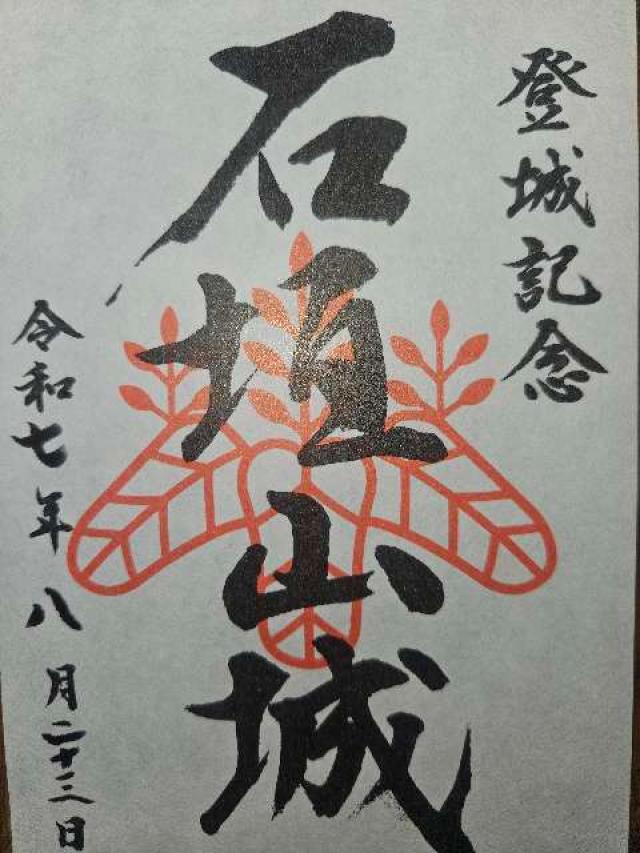 登城記念
石垣山城
令和七年八月二十三日